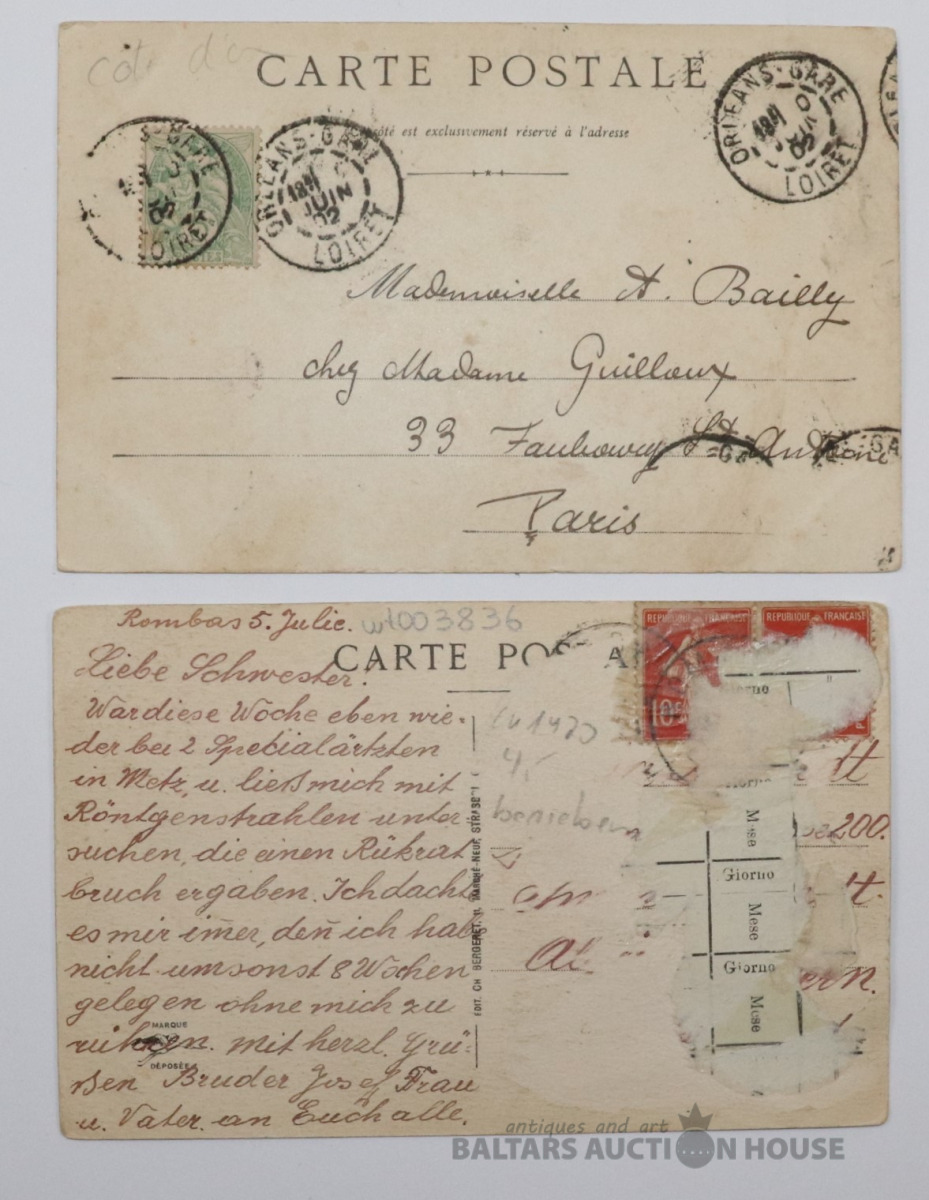 Cote d'or
CARTE POSTALE
côté est exclusivement réservé à l'adresse
GARE
LOIRET
ORLEANS-GARE
JUIN
02
LOIRET
ORLEANS-GARE
LOIRET
Mademoiselle A. Bailly
chez Madame Guilloux
33 Faubourg St Antoine
GA
GA
Paris
Rombas 5. Julie.
wt003836
REPUBLIQUE FRANÇAISE
REPUBLIQUE FRANÇAISE
10c
Liebe Schwester!
CARTE POS A
War diese Woche eben wie-
der bei 2 Specialärtzten
in Metz, u. ließ mich mit
Röntgenstrahlen unter
suchen, die einen Rükrat
bruch ergaben. Ich dacht
es mir im̄er, den̄ ich hab
nicht umsonst 8 Wochen
gelegen ohne mich zu
rühren. Mit herzl. Grü-
ßen Bruder Josef Frau
u. Vater an Euch alle.
MARQUE
DÉPOSÉE
EDIT. CH BERGERET, MARCHÉ-NEUF, STRASB
4,-
tt
200.
t.
ern.
Giorno
Mese
Giorno
Mese
Giorno
Mese
antiques and art
BALTARS AUCTION HOUSE